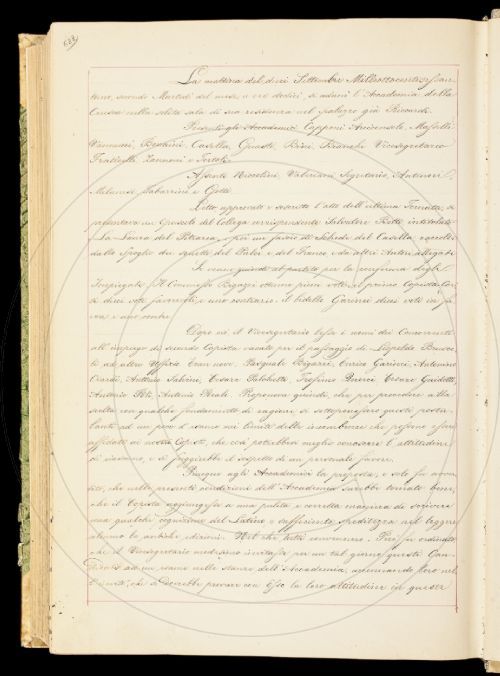 La mattina del dieci Settembre Milleottocentosessan-
tuno, secondo Martedì del mese, a ore dodici, si adunò l'Accademia della
Crusca nella solita sala di sua residenza nel palazzo già Riccardi.
Presenti gli Accademici Capponi Arciconsolo, Mafalli
Vannucci, Casella, Giusti, Bini, Bianchi Vicesegretario
Fraticelli Zannoni e Tortoli.
Assenti Nicolini Valeriani Segretario, Antinori,
Milanesi, Tabarrini e Gotti.
Letto, approvato e l'atto dell'ultima Tornata, si
presentava un Opuscolo del Collega corrispondente Salvatore Betti intitolato
La Laura del Petrarca, e poi un fascio di Schede del Casella, raccolte
dallo spoglio dei sonetti del Pulci, e del Franco, e da altri Autori allegabili.
Si venne quindi al partito per la conferma degli
Impiegati. Il Commesso Bigazzi ottenne pieni voti; il primo Copista
si dieci voti favorevoli e uno contrario: il bidello Garinei dieci voti in fa-
vore e uno contro.
Dopo ciò il Vicesegretario lesse i nomi dei Concorrenti
all'impiego di secondo Copista vacato per il passaggio di Leopoldo
ad altro Uffizio. Eran nove. Pasquale Bigazzi, Enrico Garinei, Antonino
Antonio Salvini, Cesare Cesare Guidotti,
Antonio Antonio Reali. Proponeva quindi, che per procedere alla
scelta con qualche fondamento di ragione si sottoponessero questi postu-
lanti ad un poco d'esame nei limiti delle incombenze che possono essere
affidate ai nostri Copisti, che così potrebbesi meglio conoscere l'attitudine
di ciascuno, e si fuggirebbe il sospetto di un personale favore.
Piacque agli Accademici la proposta, e solo fu avver-
tito, che nelle presenti condizioni dell'Accademia sarebbe tornato bene,
che il Copista aggiungesse a una pulita e corretta maniera di scrivere
una qualche cognizione del Latino e sufficiente speditezza nel leggere
almeno le antiche edizioni. Nel che tutti convennero. Però fu ordinato
che il Vicesegretario medesimo invitasse per un tal giorno questi Can-
didati ad un esame nelle stanze dell'Accademia, accennando loro nel-
l'invito, che dovrebbe provare con esso la loro attitudine in queste